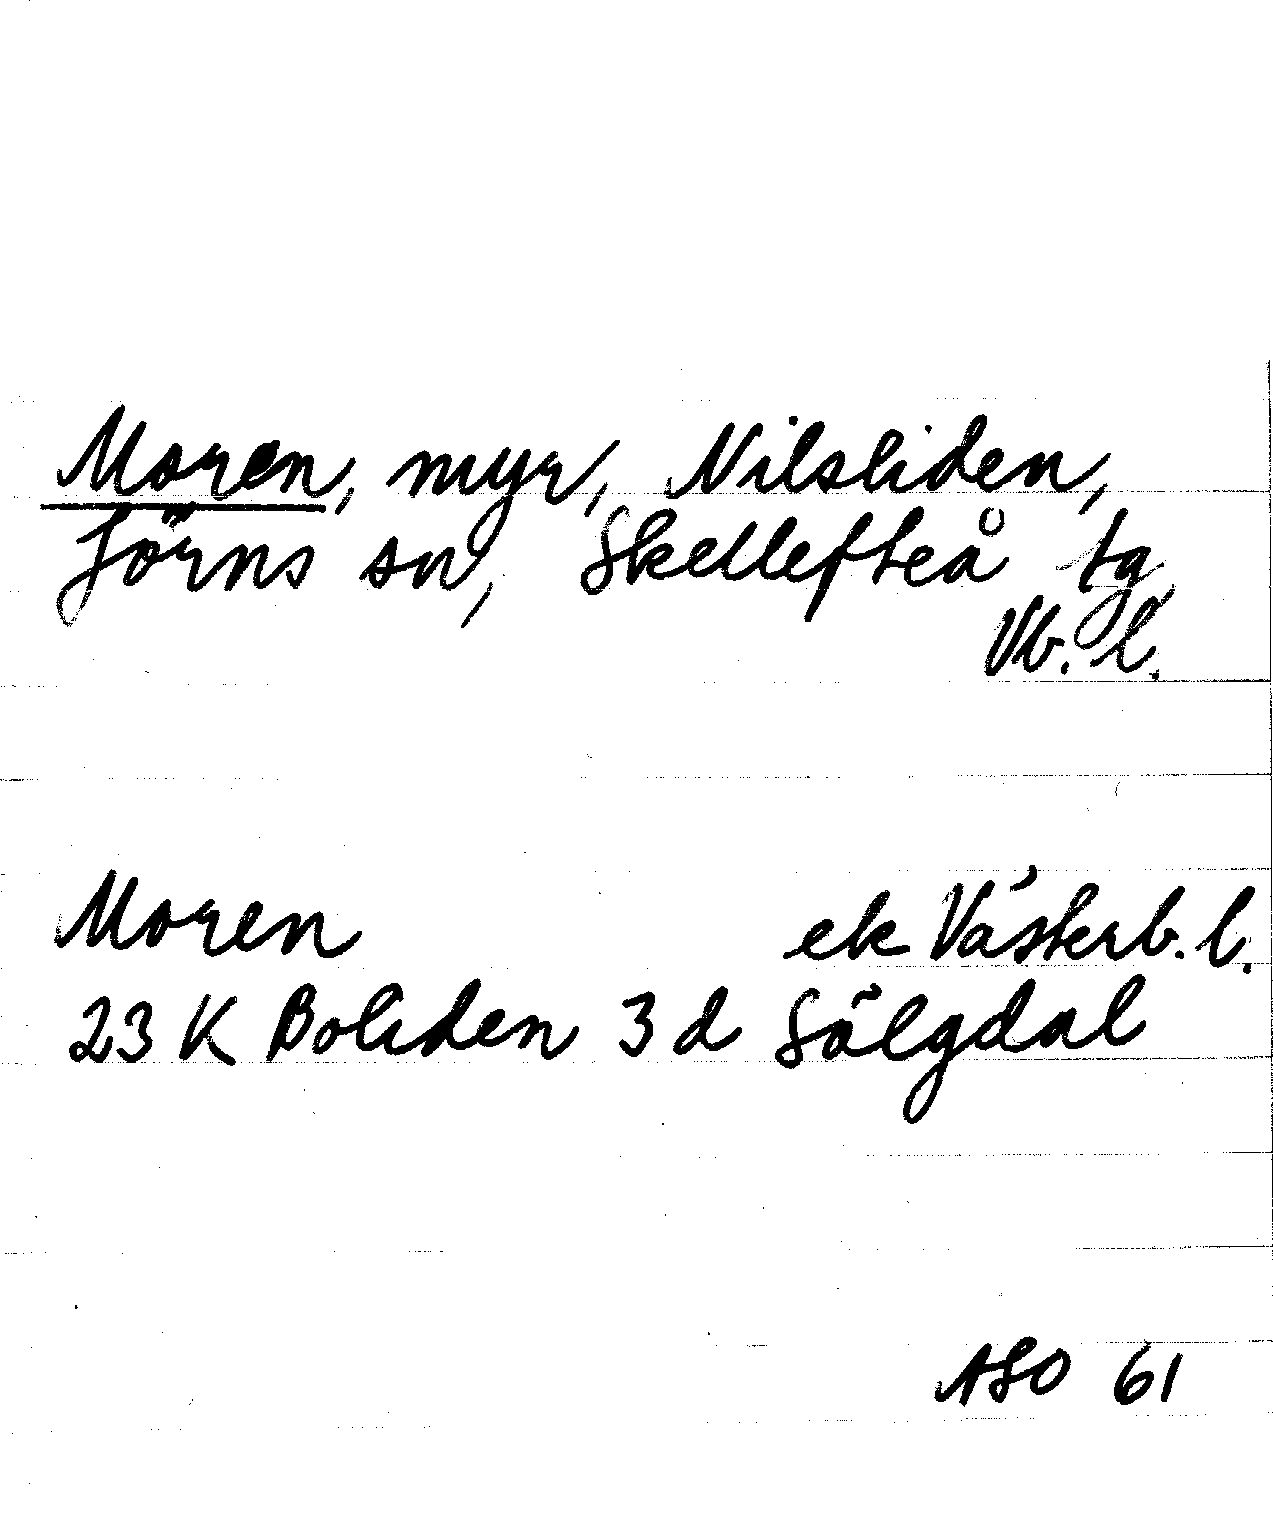 Moren, myr, Nilsliden,
Jörns sn, Skellefteå tg
Vb. l.
Moren ek Västerb. l.
23 K Boliden 3 d Sälgdal
ASO 61